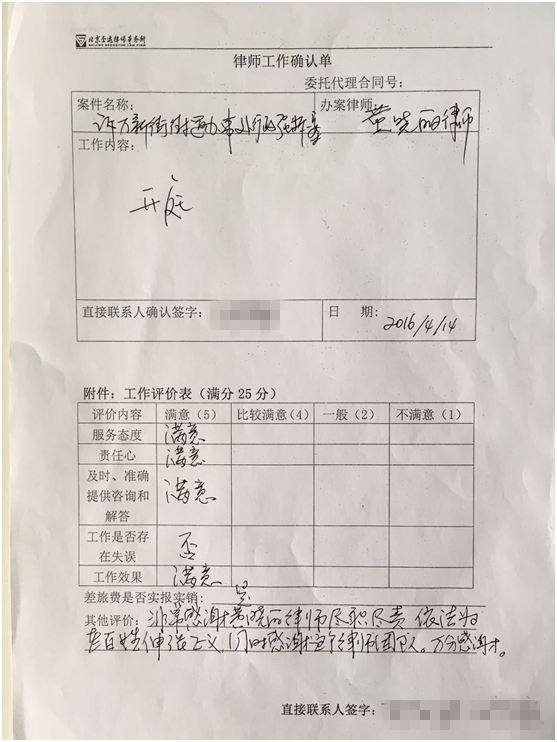 北京圣运律师事务所
BEIJING SHENGYUN LAW FIRM
律师工作确认单
委托代理合同号：
案件名称： 办案律师：
街道办事处行政强拆案 黄晓丽律师
工作内容：
开庭
直接联系人确认签字： 日 期： 2016/4/14
附件：工作评价表（满分 25 分）
评价内容 满意（5） 比较满意（4） 一般（2） 不满意（1）
服务态度 满意
责任心 满意
及时、准确
提供咨询和 满意
解答
工作是否存
在失误 否
工作效果 满意
差旅费是否实报实销： 是
其他评价：非常感谢黄晓丽律师尽职尽责 依法为
老百姓伸张正义，同时感谢 律师团队。万分感谢。
直接联系人签字：